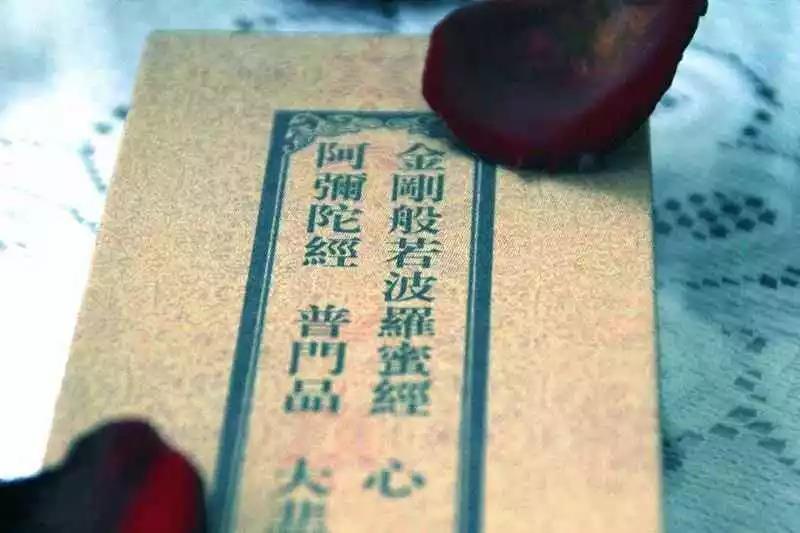 金剛般若波羅蜜經 心
阿彌陀經 普門品 大